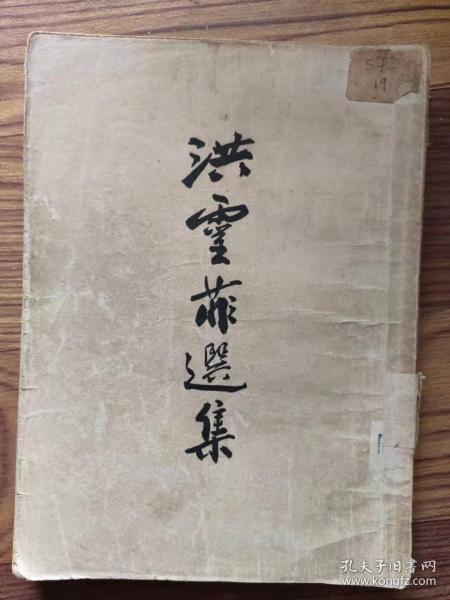 洪靈菲選集
19
孔夫子旧书网
www.kongfz.com